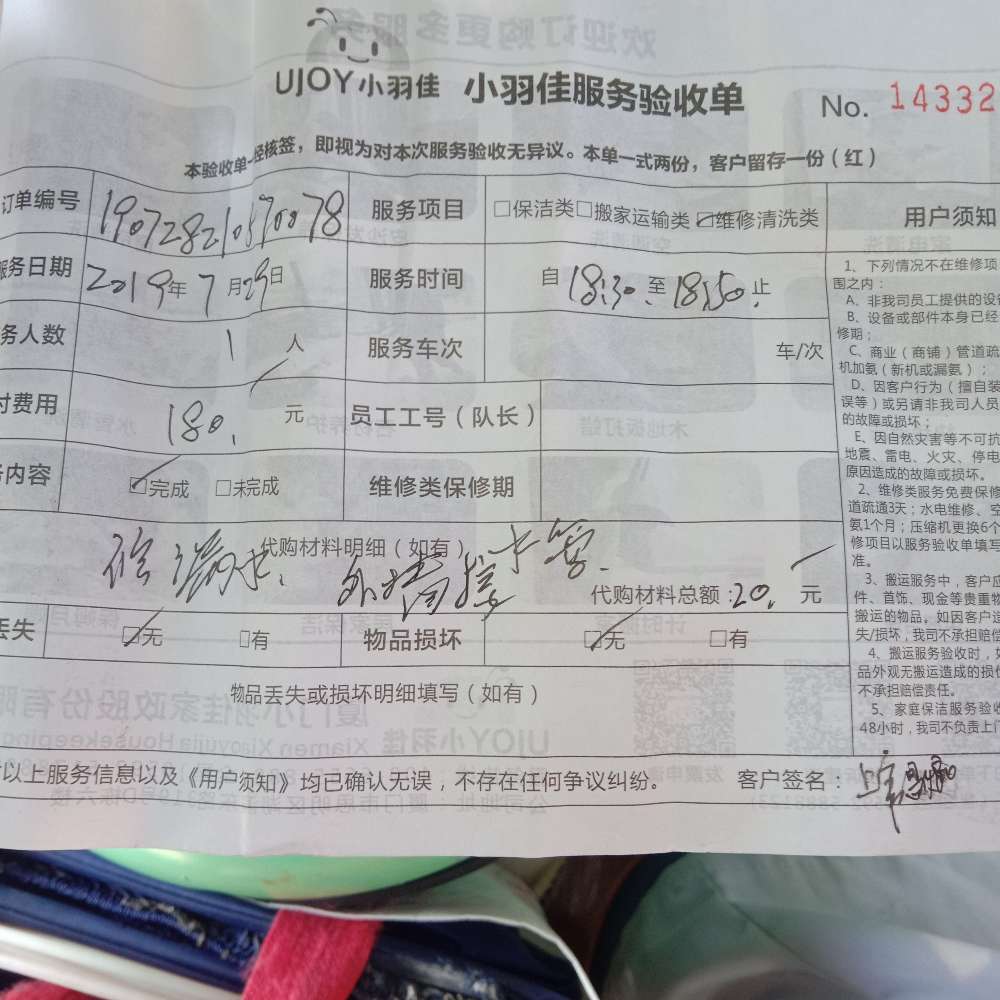 UJOY小羽佳 小羽佳服务验收单 No. 14332
本验收单一经核签，即视为对本次服务验收无异议。本单一式两份，客户留存一份（红）
订单编号 服务项目 □保洁类□搬家运输类☑维修清洗类
服务日期 2019年7月29日 服务时间 自18:30至18:50止
务人数 1人 服务车次 车/次
付费用 180.元 员工工号（队长）
务内容 ☑完成 □未完成 维修类保修期
代购材料明细（如有）
修漏水.
代购材料总额:20.元
丢失 ☑无 □有 物品损坏 ☑无 □有
物品丢失或损坏明细填写（如有）
以上服务信息以及《用户须知》均已确认无误，不存在任何争议纠纷。 客户签名：
用户须知
1、下列情况不在维修项
围之内：
A、非我司员工提供的设
B、设备或部件本身已经
修期；
C、商业（商铺）管道疏
机加氨（新机或漏氨）；
D、因客户行为（擅自装
误等）或另请非我司人员
的故障或损坏；
E、因自然灾害等不可抗
地震、雷电、火灾、停电
原因造成的故障或损坏。
2、维修类服务免费保修
道疏通3天；水电维修、空
氨1个月；压缩机更换6个
修项目以服务验收单填写
准。
3、搬运服务中，客户应
件、首饰、现金等贵重物
搬运的物品。如因客户
失/损坏，我司不承担赔偿
4、搬运服务验收时，如
品外观无搬运造成的损
不承担赔偿责任。
5、家庭保洁服务验收
48小时，我司不负责上门